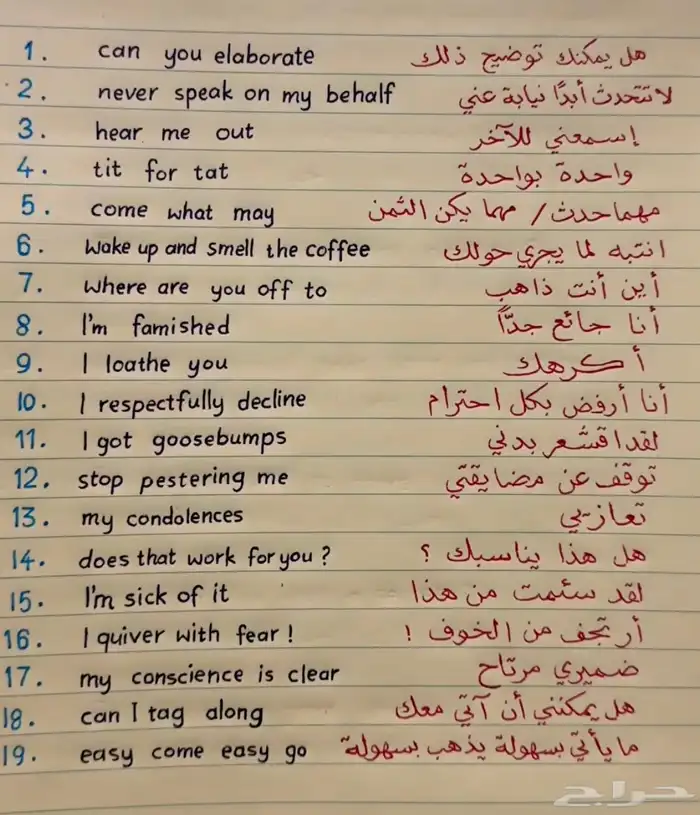 1. can you elaborate هل يمكنك توضيح ذلك
2. never speak on my behalf لا تتحدث أبدًا نيابة عني
3. hear me out إسمعني للآخر
4. tit for tat واحدة بواحدة
5. come what may مهما حدث / مهما يكن الثمن
6. wake up and smell the coffee انتبه لما يجري حولك
7. where are you off to أين أنت ذاهب
8. I'm famished أنا جائع جدًّا
9. I loathe you أكرهك
10. I respectfully decline أنا أرفض بكل احترام
11. I got goosebumps لقد اقشعر بدني
12. stop pestering me توقف عن مضايقتي
13. my condolences تعازيي
14. does that work for you? هل هذا يناسبك ؟
15. I'm sick of it لقد سئمت من هذا
16. I quiver with fear! أرتجف من الخوف !
17. my conscience is clear ضميري مرتاح
18. can I tag along هل يمكنني أن آتي معك
19. easy come easy go ما يأتي بسهولة يذهب بسهولة
حراج